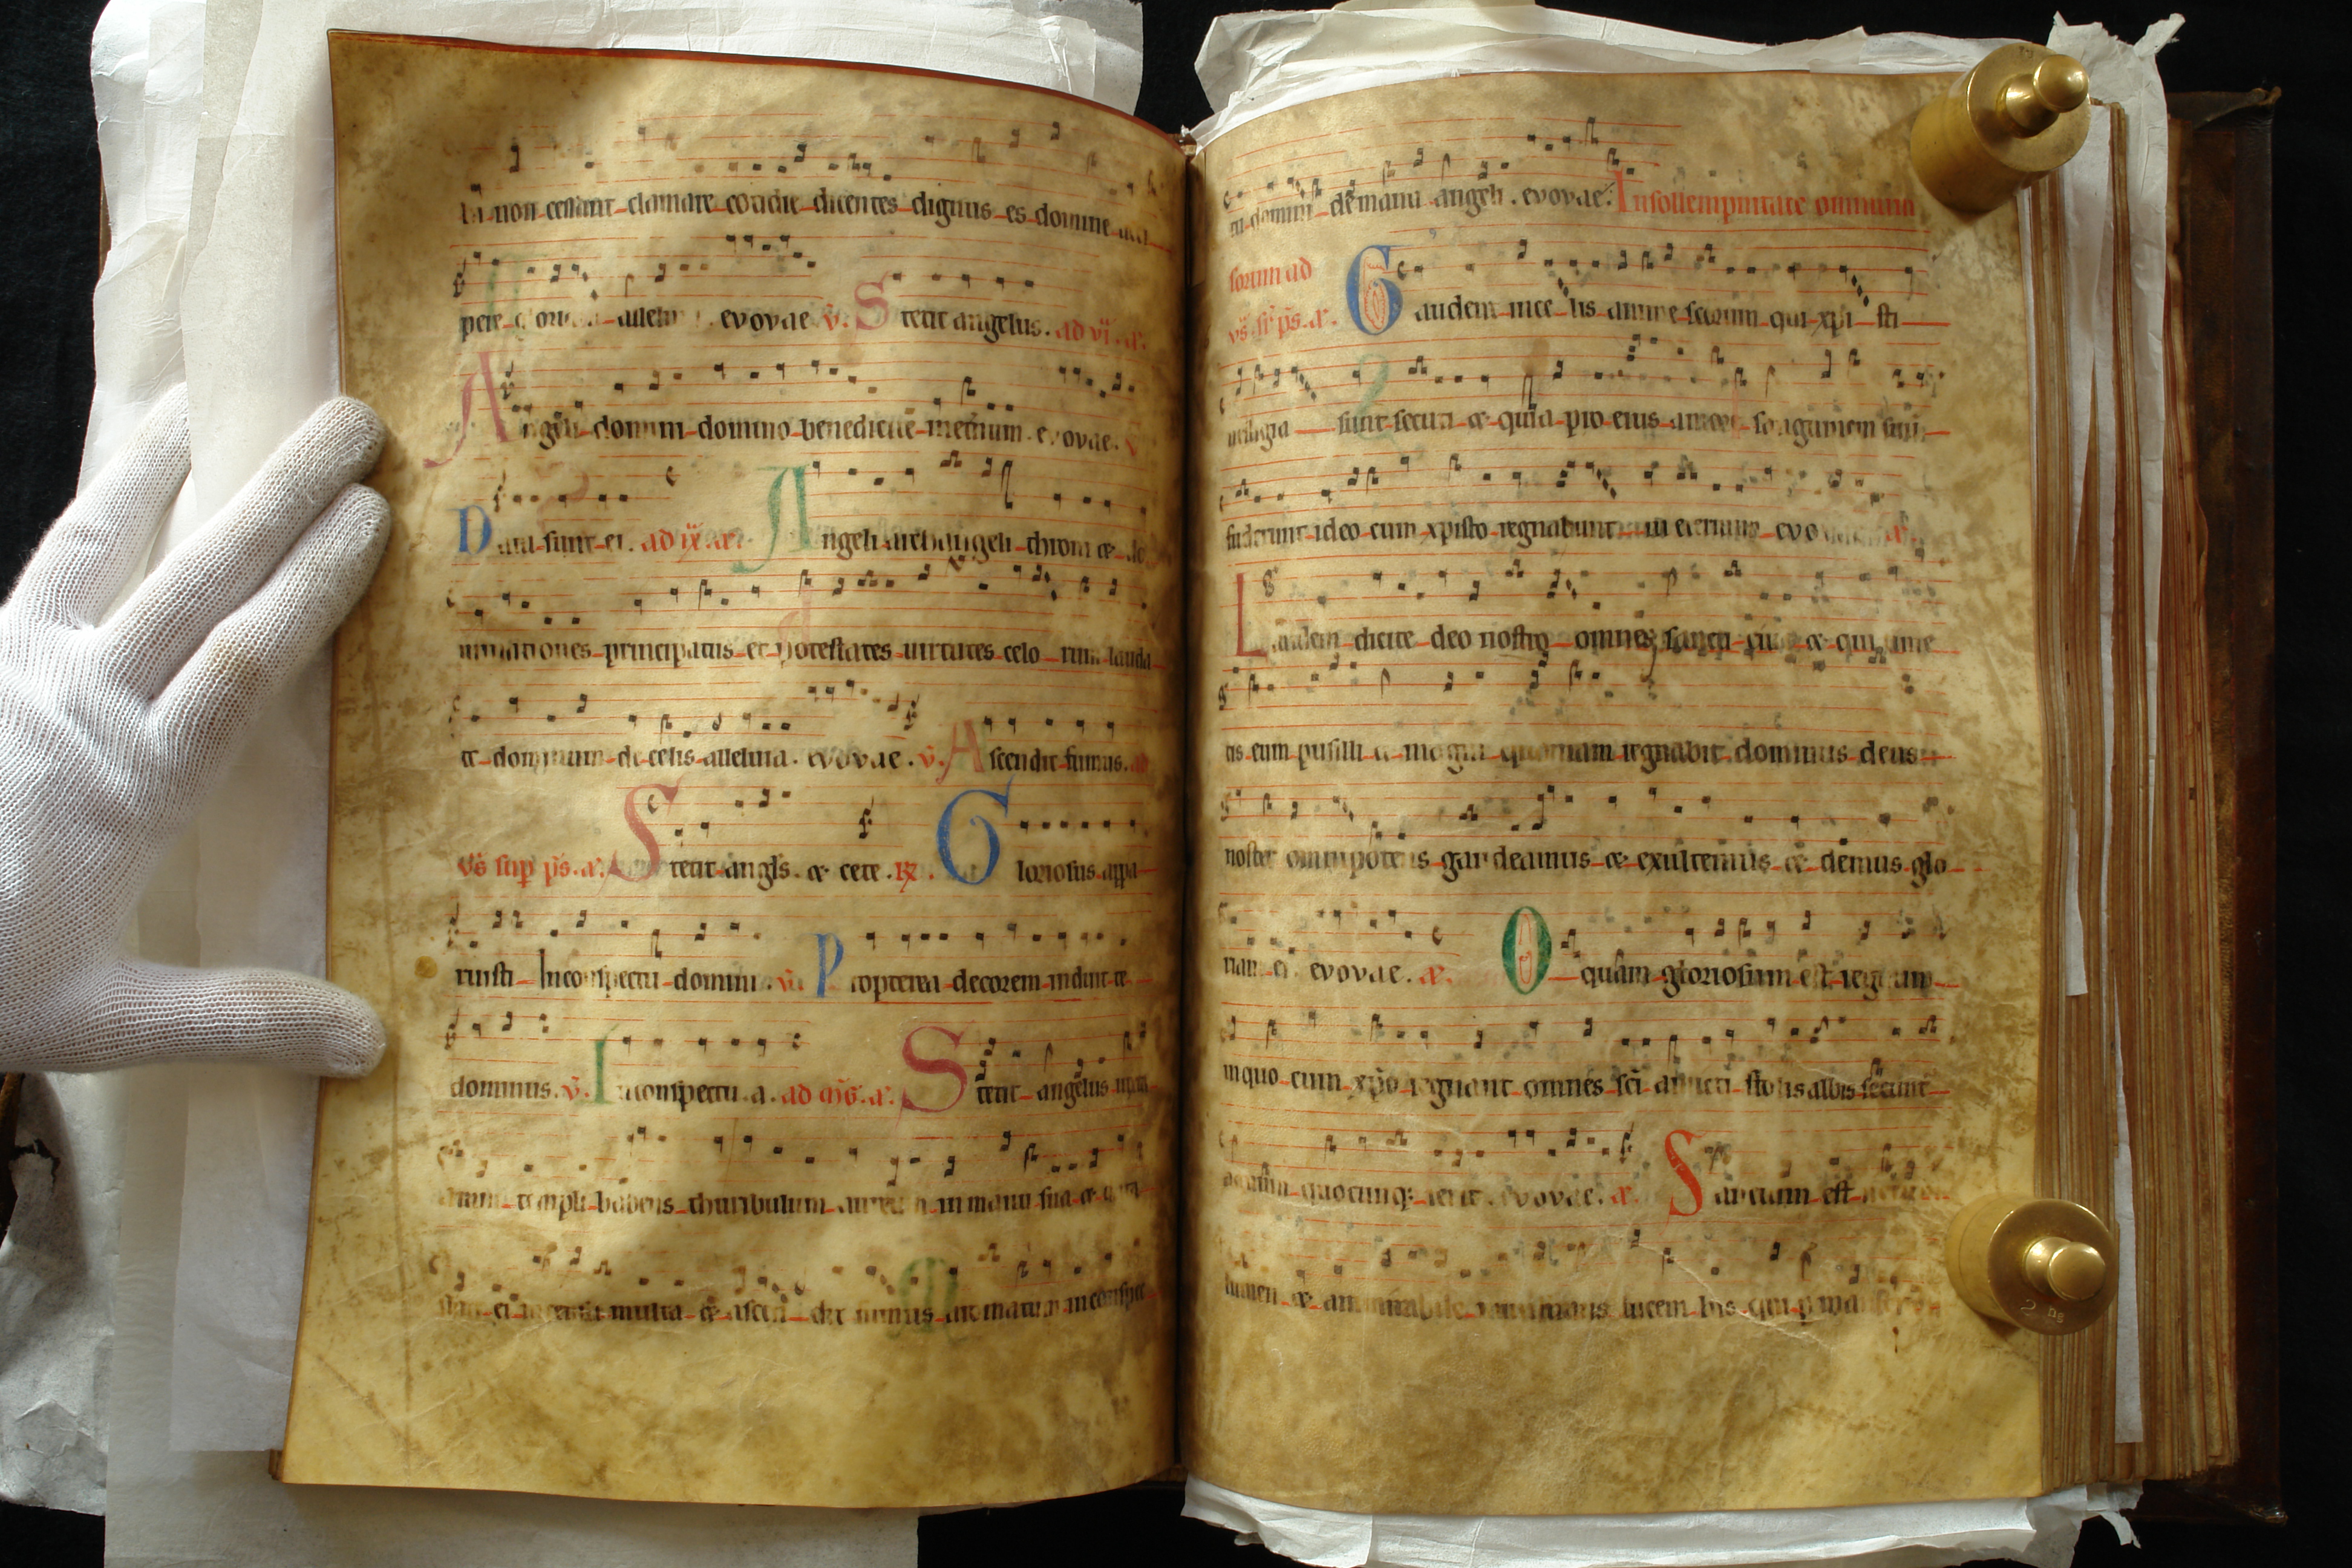 non cessant clamare cotidie dicentes dignus es domine acci
pere gloriam allelu evovae v. Stetit angelus. ad vi. a.
Angeli domini domino benedicite metrnum evovae. v
Data sunt ei. ad ix. a. Angeli archangeli throni et do
minationes principatus et potestates virtutes celo rum lauda
te dominum de celis alleluia. evovae. v. Ascendit fumus. ad
vs sup ps. a. Stetit angls. et cete. R. Gloriosus appa
ruisti Inconspectu domini. v. Propterea decorem induit te
dominus. v. Inconspectu. a. ad mg. a. Stetit angelus iuxta
templi habens thuribulum aureum in manu sua et data
sunt ei incensa multa et ascen dit fumus aromatum inconspec
tu domini de manu angeli. evovae. Insollempnitate omnium
sorum ad
vs. sr ps. a. Gaudent ince lis anime scorum qui xpi sti
vestigia sunt secuti et quia pro eius amore sanguinem suum
fuderunt ideo cum xpisto regnabunt in eternum evo
Laudem dicite deo nostro omnes sancti eius et qui time
tis eum pusilli et magni quoniam regnabit dominus deus
noster omnipotens gaudeamus et exultemus et demus glo
riam ei evovae. a. O quam gloriosum est regnum
inquo cum xpo regnant omnes sci amicti stolis albis secunt
agnum quocunq: ierit. evovae. a. Sanctum est
lumen et ammirabile lucem his qui